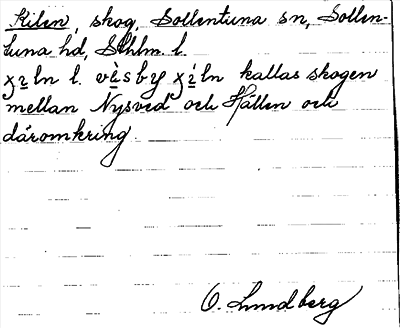 Kilen, skog, Sollentuna sn, Sollen-
tuna hd, Sthlm. l.
χiln l. vèsby χiln kallas skogen
mellan Nysved och Hällen och
däromkring
O. Lundberg